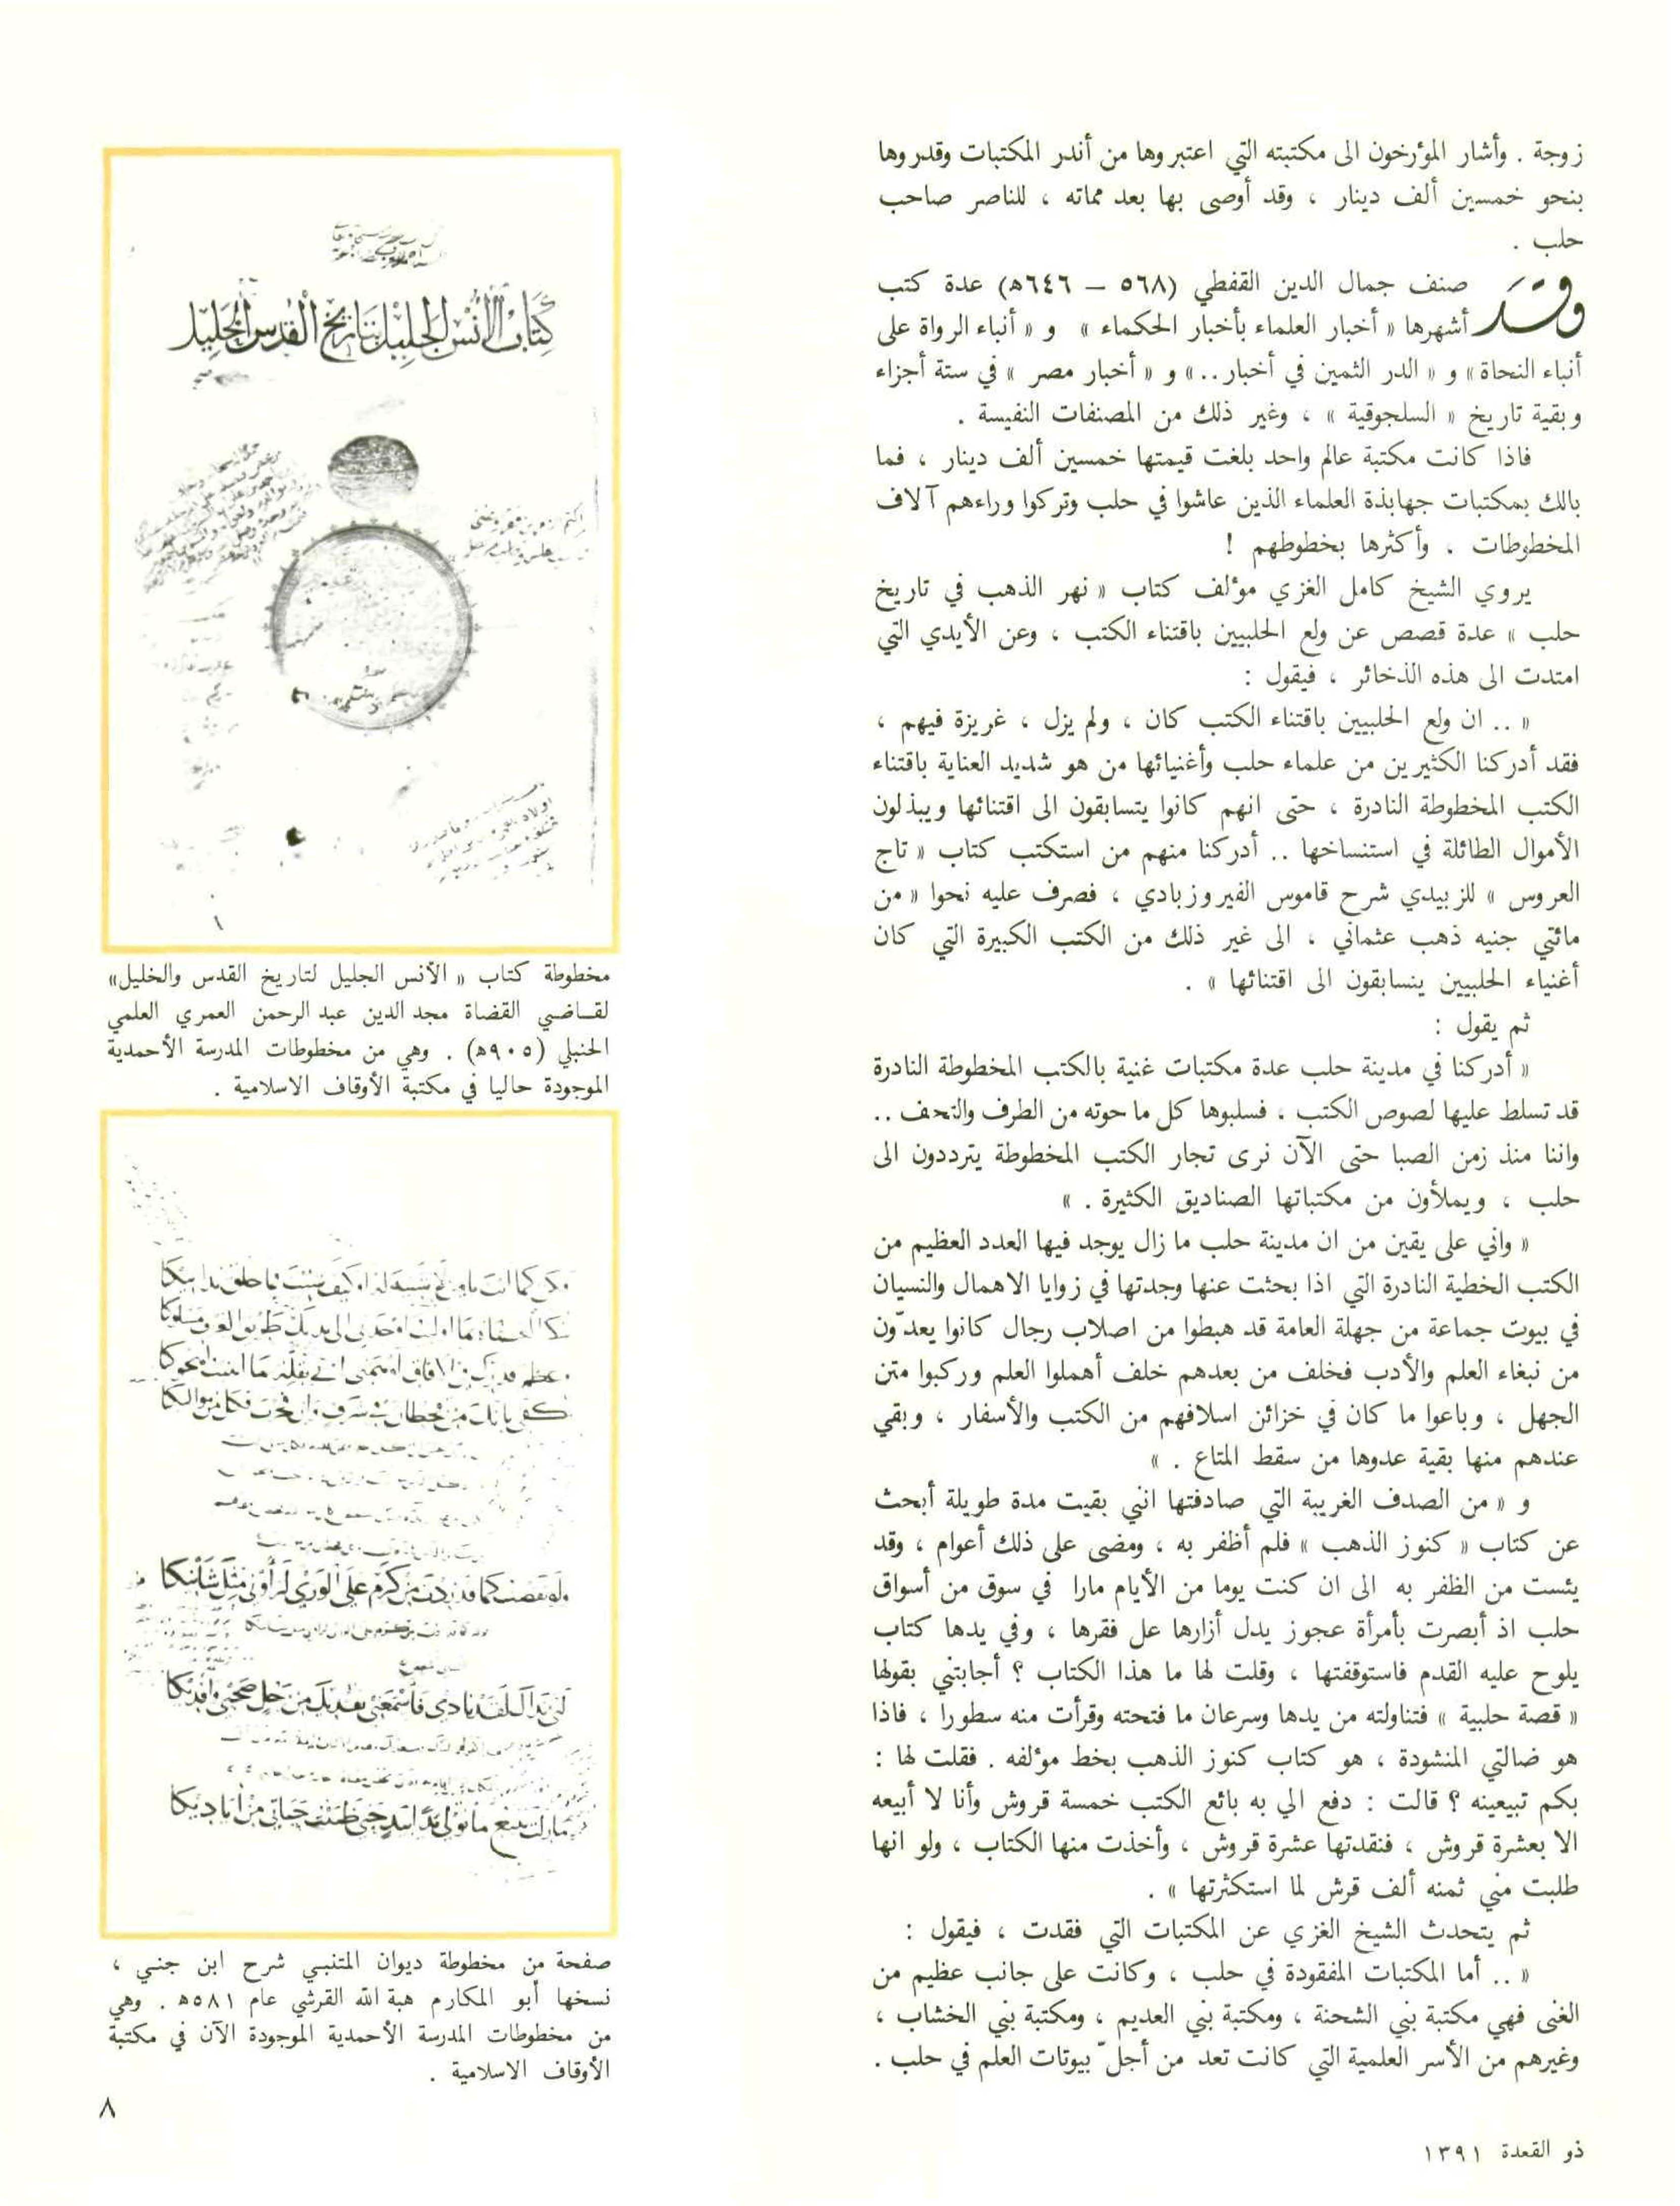 زوجة . وأشار المؤرخون الى مكتبته التي اعتبروها من أندر المكتبات وقدروها
بنحو خمسين ألف دينار ، وقد أوصى بها بعد مماته ، للناصر صاحب
حلب .
وقد صنف جمال الدين القفطي (٥٦٨ – ٦٤٦ه) عدة كتب
أشهرها « أخبار العلماء بأخبار الحكماء » و « أنباء الرواة على
أنباء النحاة » و « الدر الثمين في أخبار.. » و « أخبار مصر » في ستة أجزاء
وبقية تاريخ « السلجوقية » ، وغير ذلك من المصنفات النفيسة .
فاذا كانت مكتبة عالم واحد بلغت قيمتها خمسين ألف دينار ، فما
بالك بمكتبات جهابذة العلماء الذين عاشوا في حلب وتركوا وراءهم آلاف
المخطوطات ، وأكثرها بخطوطهم !
يروي الشيخ كامل الغزي مؤلف كتاب « نهر الذهب في تاريخ
حلب » عدة قصص عن ولع الحلبيين باقتناء الكتب ، وعن الأيدي التي
امتدت الى هذه الذخائر ، فيقول :
« .. ان ولع الحلبيين باقتناء الكتب كان ، ولم يزل ، غريزة فيهم ،
فقد أدركنا الكثيرين من علماء حلب وأغنيائها من هو شديد العناية باقتناء
الكتب المخطوطة النادرة ، حتى انهم كانوا يتسابقون الى اقتنائها ويبذلون
الأموال الطائلة في استنساخها .. أدركنا منهم من استكتب كتاب « تاج
العروس » للزبيدي شرح قاموس الفيروزبادي ، فصرف عليه نحوا « من
مائتي جنيه ذهب عثماني ، الى غير ذلك من الكتب الكبيرة التي كان
أغنياء الحلبيين ينسابقون الى اقتنائها » .
ثم يقول :
« أدركنا في مدينة حلب عدة مكتبات غنية بالكتب المخطوطة النادرة
قد تسلط عليها لصوص الكتب ، فسلبوها كل ما حوته من الطرف والتحف ..
واننا منذ زمن الصبا حتى الآن نرى تجار الكتب المخطوطة يترددون الى
حلب ، ويملأون من مكتباتها الصناديق الكثيرة . »
« واني على يقين من ان مدينة حلب ما زال يوجد فيها العدد العظيم من
الكتب الخطية النادرة التي اذا بحثت عنها وجدتها في زوايا الاهمال والنسيان
في بيوت جماعة من جهلة العامة قد هبطوا من اصلاب رجال كانوا يعدّون
من نبغاء العلم والأدب فخلف من بعدهم خلف أهملوا العلم وركبوا متن
الجهل ، وباعوا ما كان في خزائن اسلافهم من الكتب والأسفار ، وبقي
عندهم منها بقية عدوها من سقط المتاع . »
و « من الصدف الغريبة التي صادفتها انني بقيت مدة طويلة أبحث
عن كتاب « كنوز الذهب » فلم أظفر به ، ومضى على ذلك أعوام ، وقد
يئست من الظفر به الى ان كنت يوما من الأيام مارا في سوق من أسواق
حلب اذ أبصرت بأمرأة عجوز يدل أزارها عل فقرها ، وفي يدها كتاب
يلوح عليه القدم فاستوقفتها ، وقلت لها ما هذا الكتاب ؟ أجابتني بقولها
« قصة حلبية » فتناولته من يدها وسرعان ما فتحته وقرأت منه سطورا ، فاذا
هو ضالتي المنشودة ، هو كتاب كنوز الذهب بخط مؤلفه . فقلت لها :
بكم تبيعينه ؟ قالت : دفع الي به بائع الكتب خمسة قروش وأنا لا أبيعه
الا بعشرة قروش ، فنقدتها عشرة قروش ، وأخذت منها الكتاب ، ولو انها
طلبت مني ثمنه ألف قرش لما استكثرتها » .
ثم يتحدث الشيخ الغزي عن المكتبات التي فقدت ، فيقول :
« .. أما المكتبات المفقودة في حلب ، وكانت على جانب عظيم من
الغنى فهي مكتبة بني الشحنة ، ومكتبة بني العديم ، ومكتبة بني الخشاب ،
وغيرهم من الأسر العلمية التي كانت تعد من أجلّ بيوتات العلم في حلب .
كتاب الأنس الجليل بتاريخ القدس والخليل
مخطوطة كتاب « الأنس الجليل لتاريخ القدس والخليل»
لقـاضي القضاة مجد الدين عبد الرحمن العمري العلمي
الحنبلي (٩٠٥ه) . وهي من مخطوطات المدرسة الأحمدية
الموجودة حاليا في مكتبة الأوقاف الاسلامية .
صفحة من مخطوطة ديوان المتنبي شرح ابن جني ،
نسخها أبو المكارم هبة الله القرشي عام ٥٨١ه . وهي
من مخطوطات المدرسة الأحمدية الموجودة الآن في مكتبة
الأوقاف الاسلامية .
٨
ذو القعدة ١٣٩١